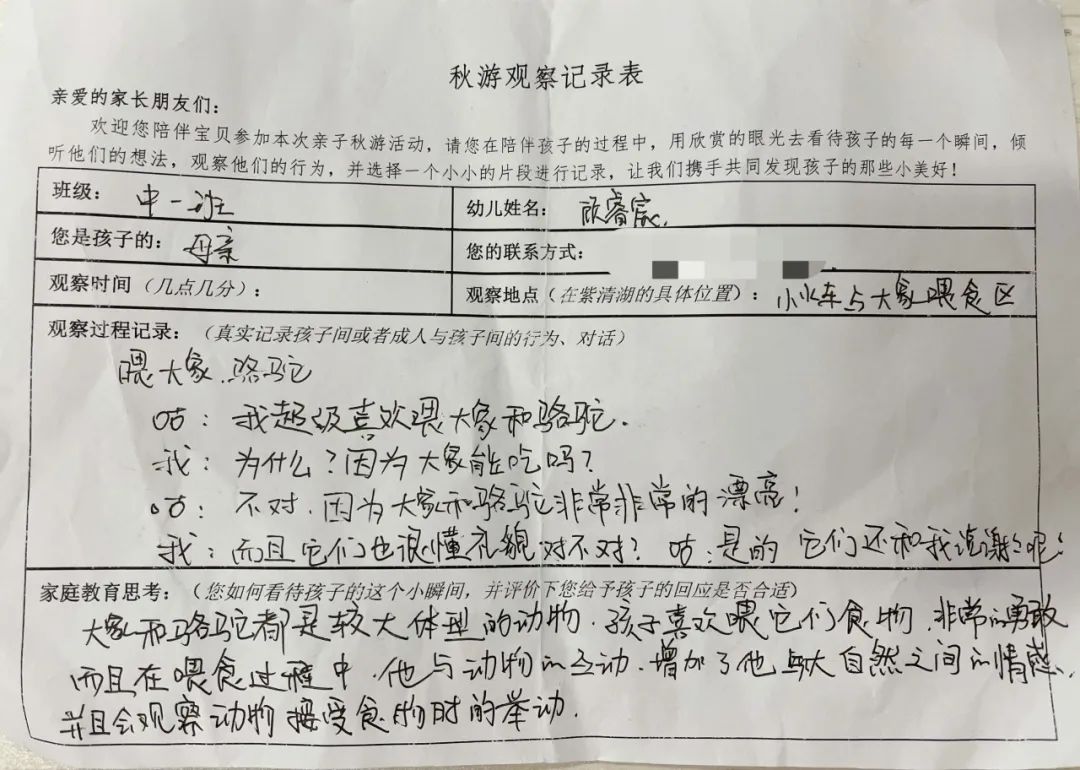 秋游观察记录表
亲爱的家长朋友们：
欢迎您陪伴宝贝参加本次亲子秋游活动，请您在陪伴孩子的过程中，用欣赏的眼光去看待孩子的每一个瞬间，倾
听他们的想法，观察他们的行为，并选择一个小小的片段进行记录，让我们携手共同发现孩子的那些小美好！
班级： 中一班 幼儿姓名： 顾睿宸.
您是孩子的： 母亲 您的联系方式：
观察时间（几点几分）： 观察地点（在紫清湖的具体位置）： 小火车与大象喂食区
观察过程记录：（真实记录孩子间或者成人与孩子间的行为、对话）
喂大象.骆驼
咕：我超级喜欢喂大象和骆驼.
我：为什么？因为大象能吃吗？
咕：不对.因为大象和骆驼非常非常的漂亮！
我：而且它们也很懂礼貌对不对？咕：是的 它们还和我说谢谢呢！
家庭教育思考：（您如何看待孩子的这个小瞬间，并评价下您给予孩子的回应是否合适）
大象和骆驼都是较大体型的动物.孩子喜欢喂它们食物.非常的勇敢
而且在喂食过程中.他与动物的互动.增加了他与大自然之间的情感.
并且会观察动物接受食物时的举动.